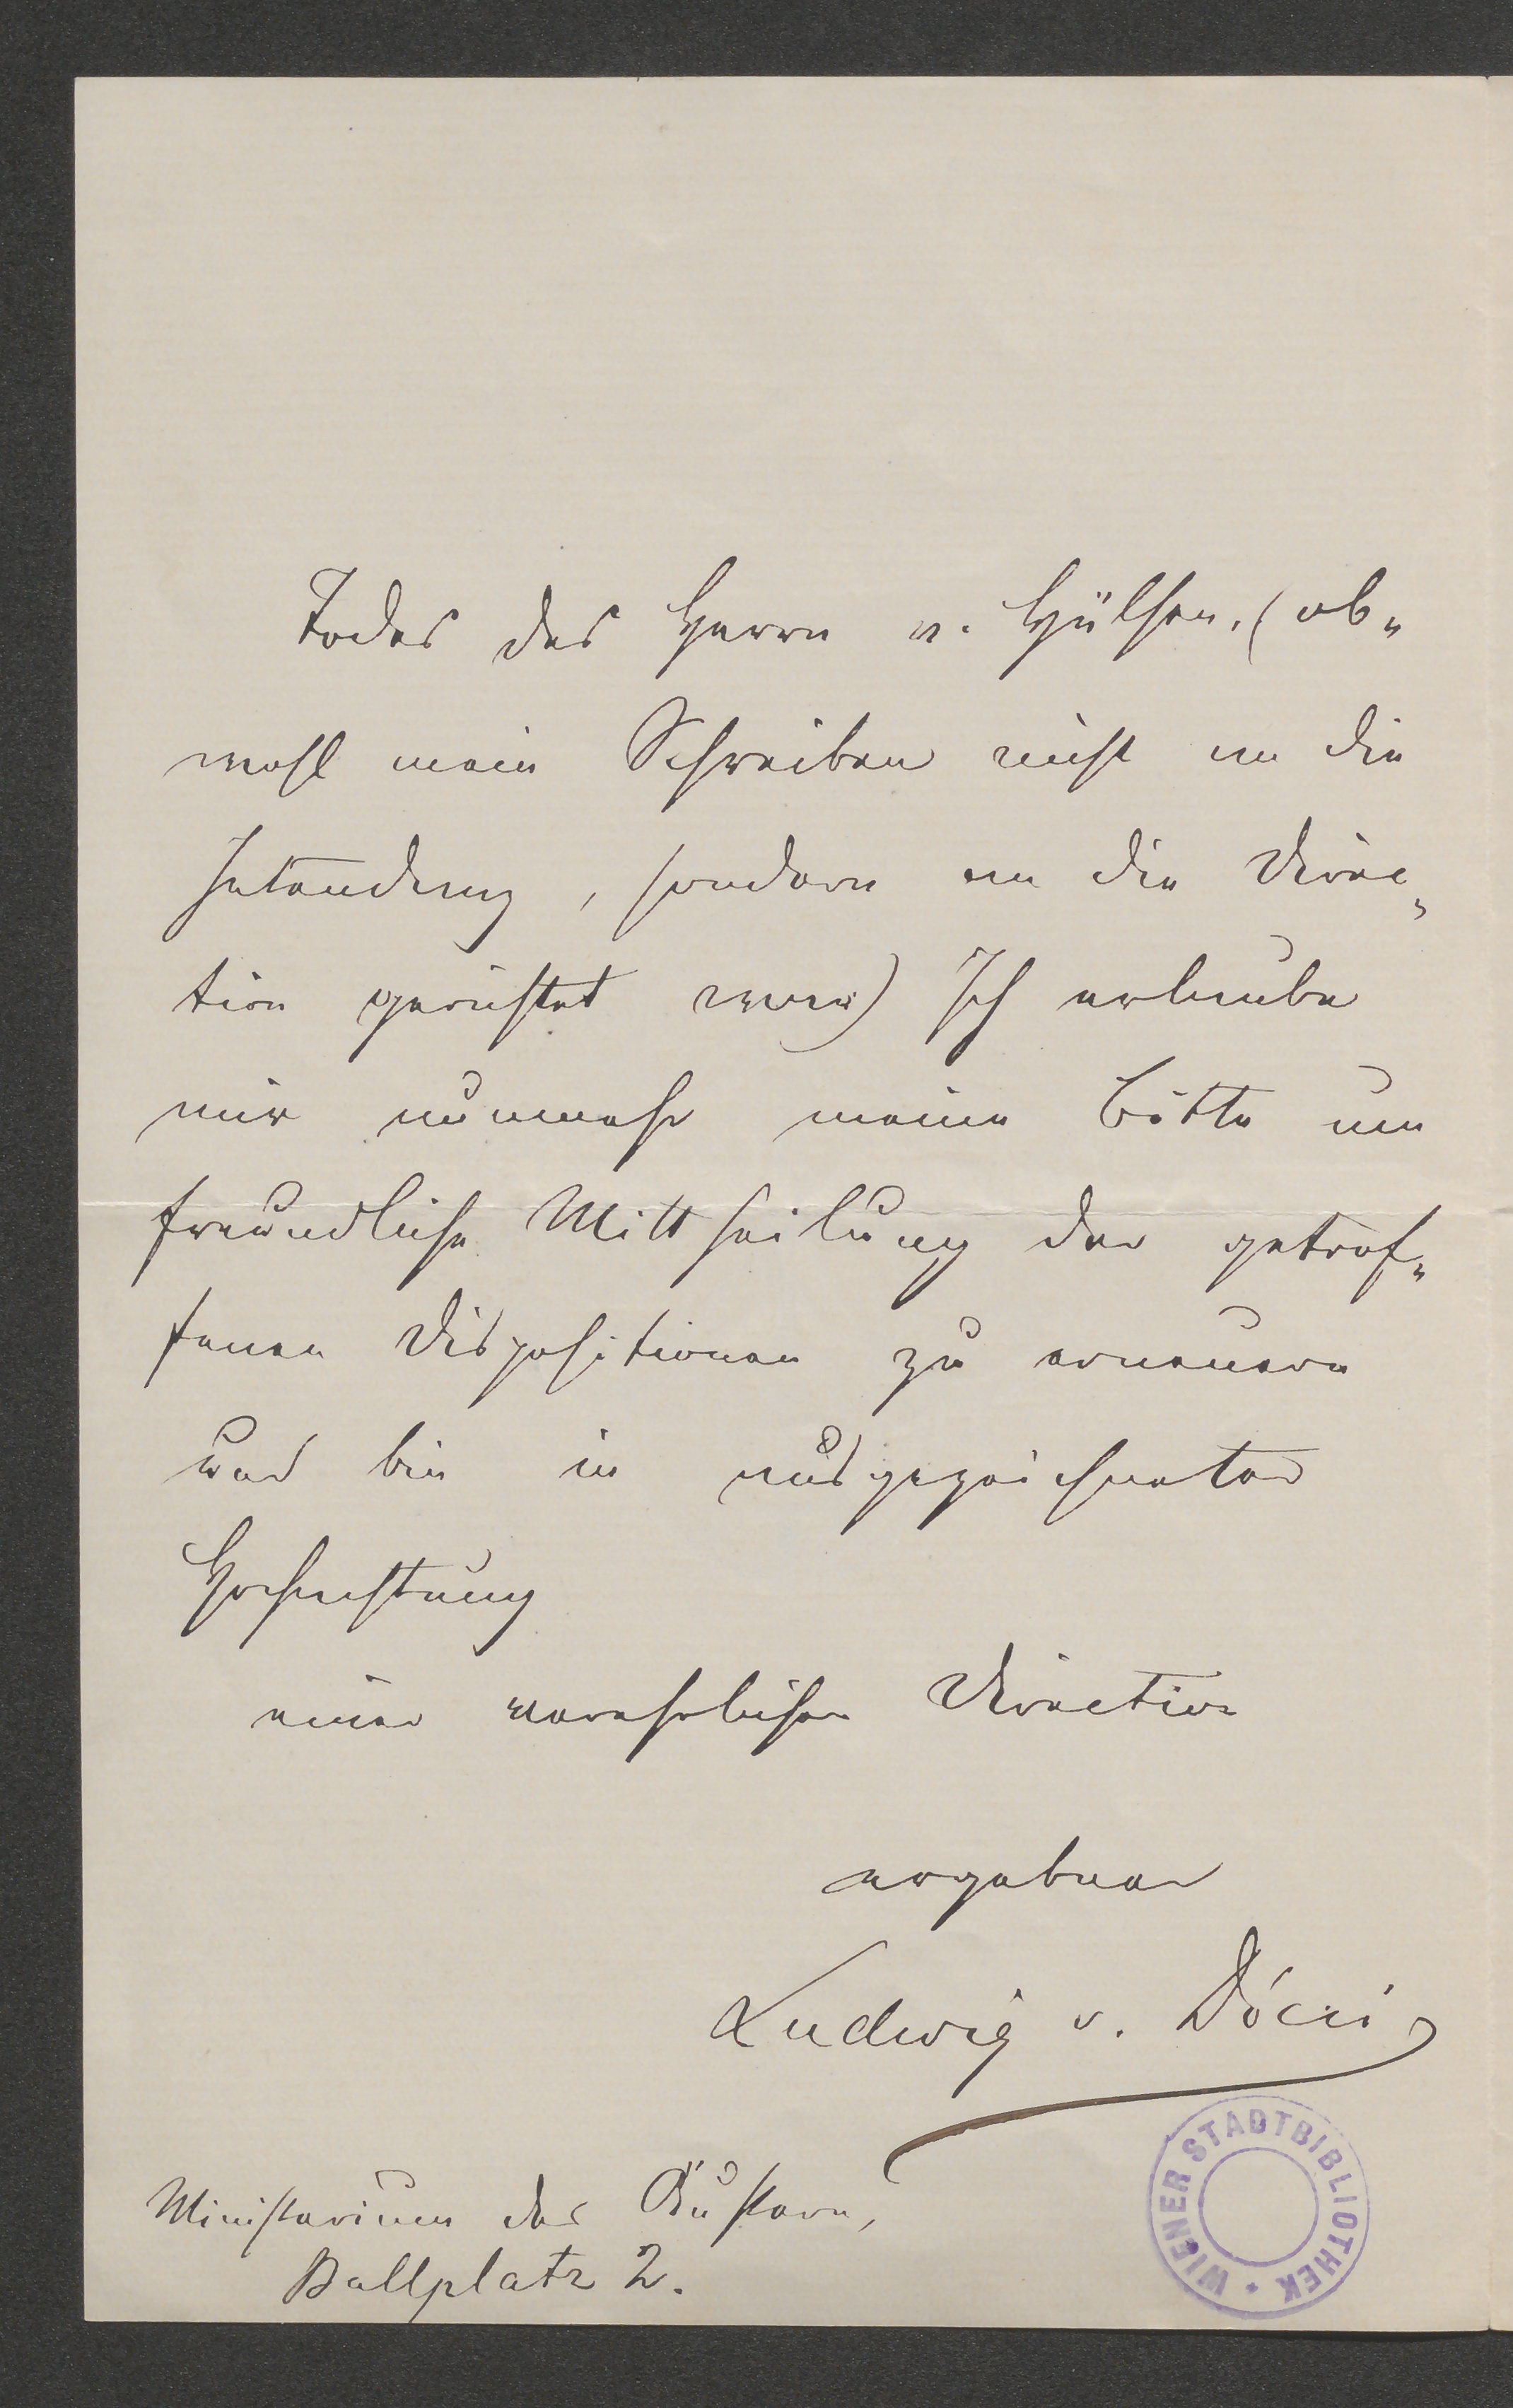 Todes des Herrn v. Hülsen, (ob-
wohl mein Schreiben nicht an die
Intendanz, sondern an die Direc-
tion gerichtet war) Ich erlaube
mir nunmehr meine Bitte um
freundliche Mittheilung der getrof-
fenen Dispositionen zu erneuern
und bin in ausgezeichneter
Hochachtung
einer verehrlichen Direction
ergebener
Ludwig v. Dóczi
Ministerium des Äußern,
Ballplatz 2.
WIENER STADTBIBLIOTHEK *